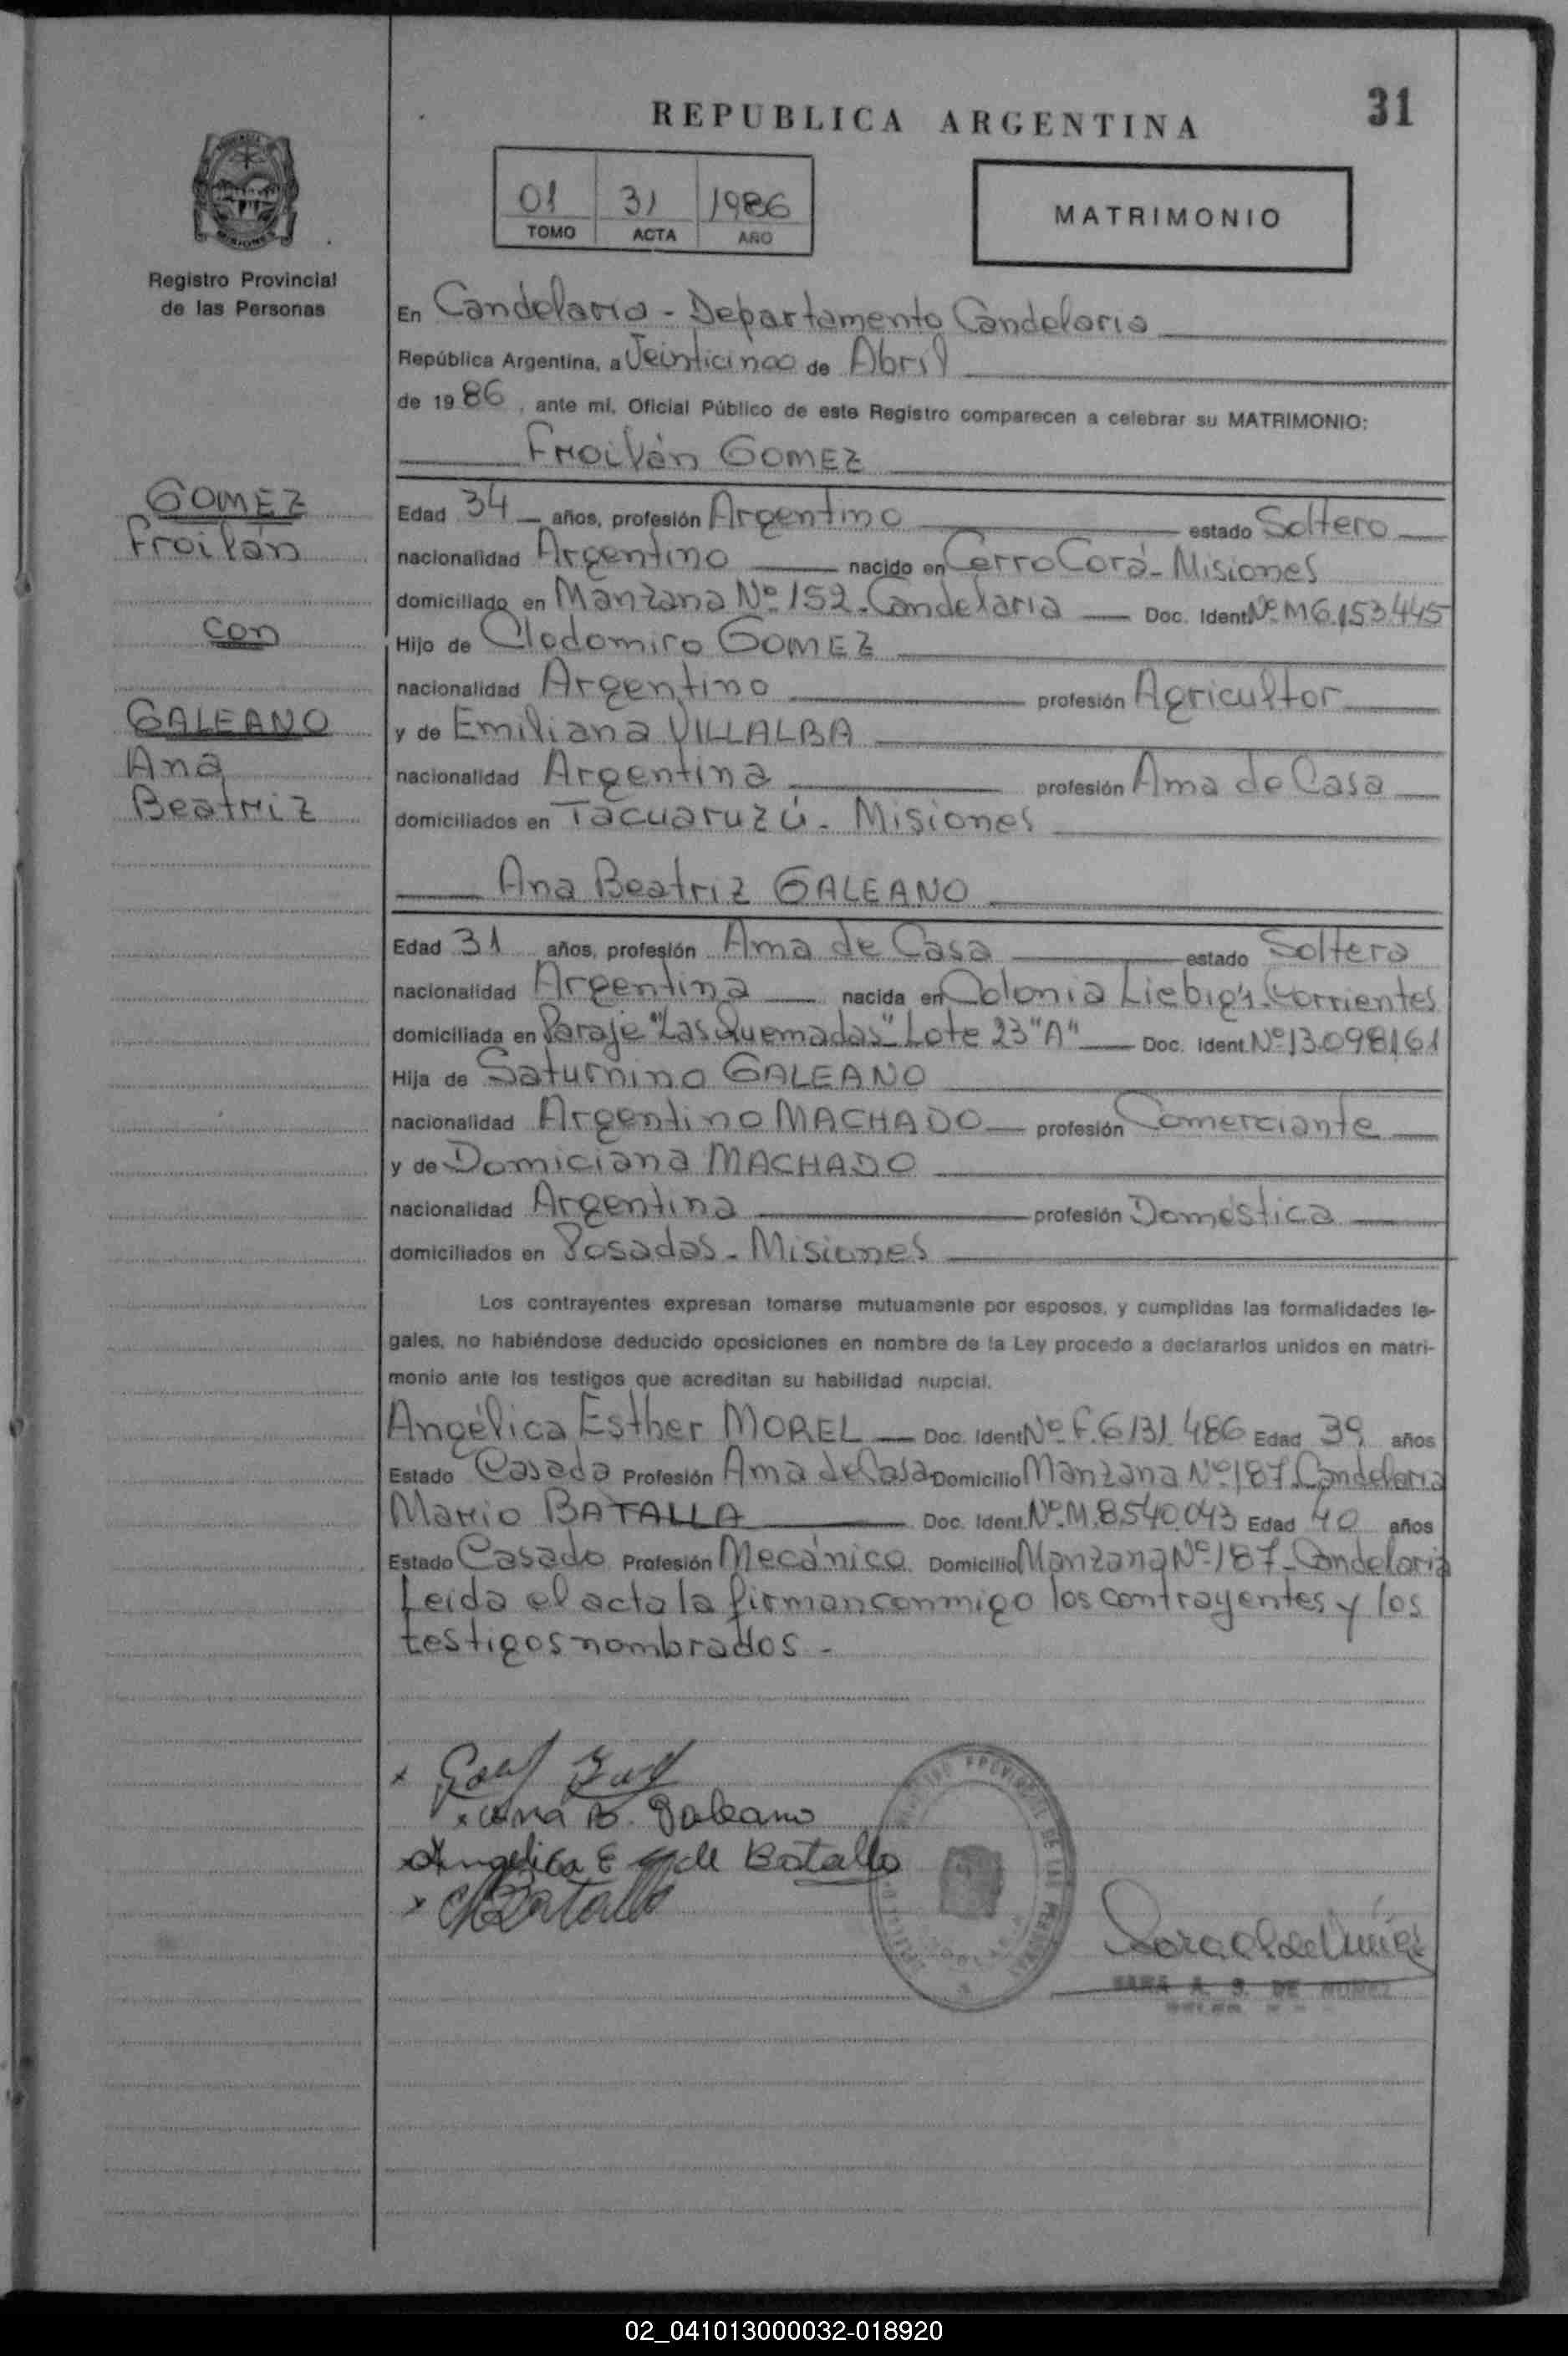 31
REPUBLICA ARGENTINA
01 31 1986
TOMO ACTA AÑO
MATRIMONIO
Registro Provincial
de las Personas
En Candelaria - Departamento Candelaria
República Argentina, a Veinticinco de Abril
de 1986, ante mí, Oficial Público de este Registro comparecen a celebrar su MATRIMONIO:
Froilán GOMEZ
GOMEZ
Froilán
con
GALEANO
Ana
Beatriz
Edad 34 años, profesión Argentino estado Soltero
nacionalidad Argentino nacido en Cerro Corá - Misiones
domiciliado en Manzana Nº 152 - Candelaria Doc. Ident. Nº M6.153.445
Hijo de Clodomiro GOMEZ
nacionalidad Argentino profesión Agricultor
y de Emiliana VILLALBA
nacionalidad Argentina profesión Ama de Casa
domiciliados en Tacuaruzú - Misiones
Ana Beatriz GALEANO
Edad 31 años, profesión Ama de Casa estado Soltera
nacionalidad Argentina nacida en Colonia Liebig's - Corrientes
domiciliada en Paraje "Las Quemadas" Lote 23 "A" Doc. Ident. Nº 13.098.161
Hija de Saturnino GALEANO
nacionalidad Argentino MACHADO profesión Comerciante
y de Domiciana MACHADO
nacionalidad Argentina profesión Doméstica
domiciliados en Posadas - Misiones
Los contrayentes expresan tomarse mutuamente por esposos, y cumplidas las formalidades le-
gales, no habiéndose deducido oposiciones en nombre de la Ley procedo a declararlos unidos en matri-
monio ante los testigos que acreditan su habilidad nupcial.
Angélica Esther MOREL Doc. Ident. Nº F.6.131.486 Edad 39 años
Estado Casada Profesión Ama de Casa Domicilio Manzana Nº 187 - Candelaria
Mario BATALLA Doc. Ident. Nº M.8.540.043 Edad 40 años
Estado Casado Profesión Mecánico Domicilio Manzana Nº 187 - Candelaria
Leída el acta la firman conmigo los contrayentes y los
testigos nombrados -
x Ana B. Galeano
x Angelica E de Batalla
x Batalla
SARA A. S. DE NUÑEZ
02_041013000032-018920